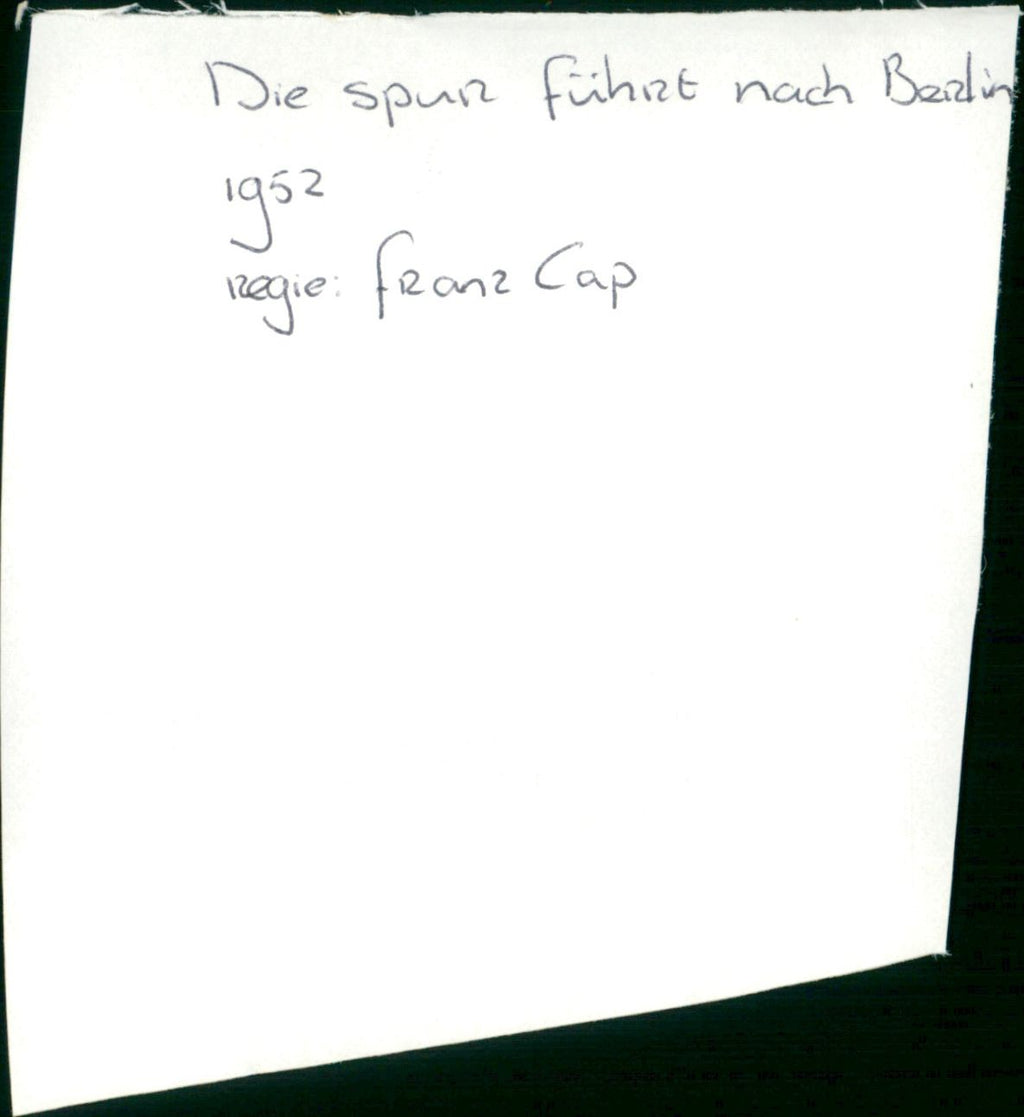 Die spur führt nach Berlin
1952
regie: Franz Cap